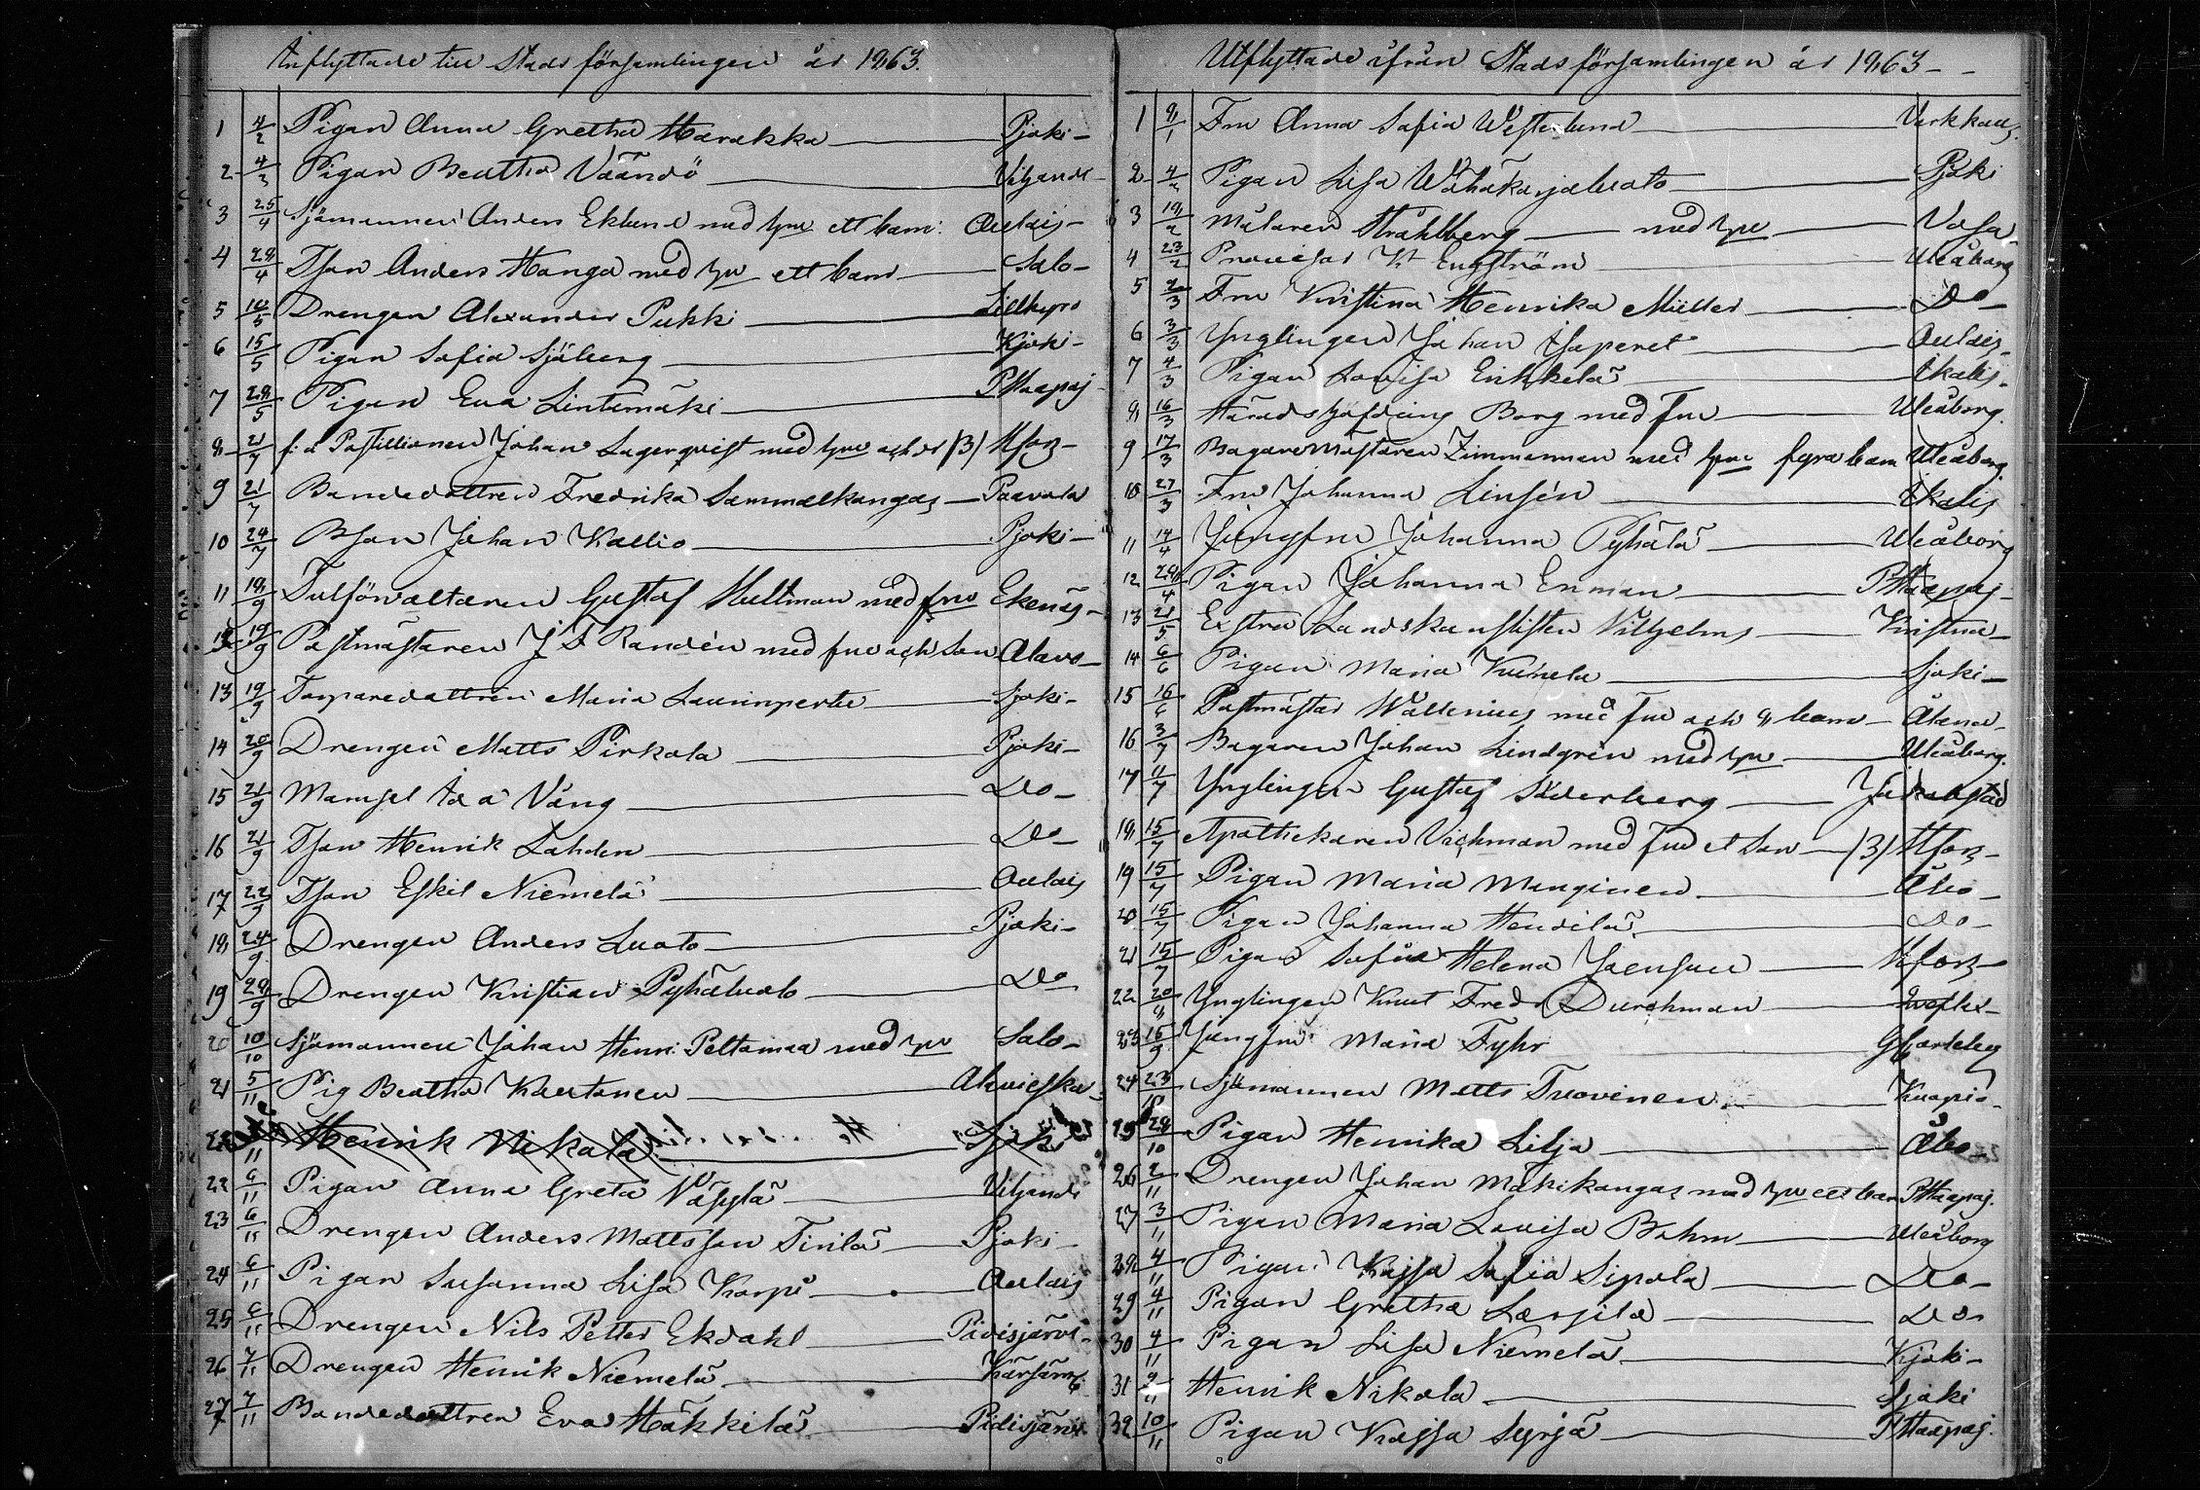 Inflyttade till Stads församlingen år 1863.
1 4/2 Pigan Anna Gretha Harakka Pjoki
2 4/3 Pigan Beatha Väändö Viljands
3 25/4 Sjömannen Anders Eklund med hru ett barn Aulais
4 28/4 Json Anders Hanga med hru ett barn Salo
5 10/5 Drengen Alexander Pukki Lillkyro
6 15/5 Pigan Sofia Sjöberg Kjoki
7 28/5 Pigan Eva Lintamäki PHaapaj
8 21/7 f: d Postillionen Johan Lagerqvist med hru och dr (3) Hfors
9 21/7 Bondedottren Fredrika Sammalkangas Paavola
10 24/7 Bson Johan Kallio Pjoki
11 18/9 Tulförvaltaren Gustaf Hultman med fru Ekenäs
12 19/9 Postmästaren J F Randén med fru och son Alavo
13 19/9 Torparedottren Maria Launinpertu Sjoki
14 20/9 Drengen Matts Pirkola Pjoki
15 21/9 Mamsel Ida Vång Do
16 21/9 Json Henrik Lahden Do
17 22/9 Json Eskil Niemelä Oulais
18 24/9 Drengen Anders Luoto Pjoki
19 28/9 Drengen Kristian Pyhäluoto Do
20 10/10 Sjömannen Johan Henr: Peltomaa med hru Salo
21 5/11 Pig Beatha Kaertonen Alavieska
22 /11 Henrik Nikola Sjoki
22 6/11 Pigan Anna Greta Väpylä Viljands
23 6/11 Drengen Anders Mattsson Tirilä Pjoki
24 6/11 Pigan Susanna Lisa Karpi Aulais
25 6/11 Drengen Nils Petter Ekdahl Pidisjärvi
26 7/11 Drengen Henrik Niemelä Kärsäm
27 7/11 Bondedottren Eva Häkkilä Pidisjärvi
Utflyttade ifrån Stads församlingen år 1863
1 8/1 Fru Anna Sofia Westerlund Varkkaus
2 4/2 Pigan Lisa Wähäkarjaluoto Pjoki
3 18/2 Målaren Stråhlberg med hru Vasa
4 23/2 Provisor K Engström Uleåborg
5 2/3 Fru Kristina Henrika Müller Do
6 3/3 Ynglingen Johan Japeret Aulais
7 4/3 Pigan Lovisa Erkkelä Ikalis
8 16/3 Häradshöfding Borg med fru Uleåborg
9 17/3 Bagaremästaren Zimmerman med hru fyra barn Uleåborg
10 27/3 Fru Johanna Linsén Ikalis
11 14/4 Jungfru Johanna Pyhälä Uleåborg
12 28/4 Pigan Johanna Enman PHaapaj
13 21/5 Extra Landskanslisten Vilhjelms Kristina
14 6/6 Pigan Maria Kuinela Sjoki
15 16/6 Postmästar Wallenius med fru och 8 barn Åland
16 3/7 Bagaren Johan Lindgrén med hru Uleåborg
17 11/7 Ynglingen Gustaf Söderberg Jakobstad
18 15/7 Apothekaren Vichman med fru et son (3) Hfors
19 15/7 Pigan Maria Manginen Åbo
20 15/7 Pigan Johanna Hendilä Do
21 15/7 Pigan Sofia Helena Joensuu Hfors
22 20/8 Ynglingen Knut Fredr Durchman
23 16/9 Jungfru Maria Fyhr Gkarleby
24 23/10 Sjömannen Matts Trovinen Kuopio
25 28/10 Pigan Henrika Lilja Åbo
26 2/11 Drengen Johan Mäkikangas med hru ett barn PHaapaj.
27 3/11 Pigan Maria Lovisa Bohm Uleåborg
28 4/11 Pigan Kajsa Sofia Sipola Do
29 4/11 Pigan Gretha Lassila Do
30 4/11 Pigan Lisa Niemelä Kjoki
31 9/11 Henrik Nikola Sjoki
32 10/11 Pigan Kajsa Syrjä PHaapaj.